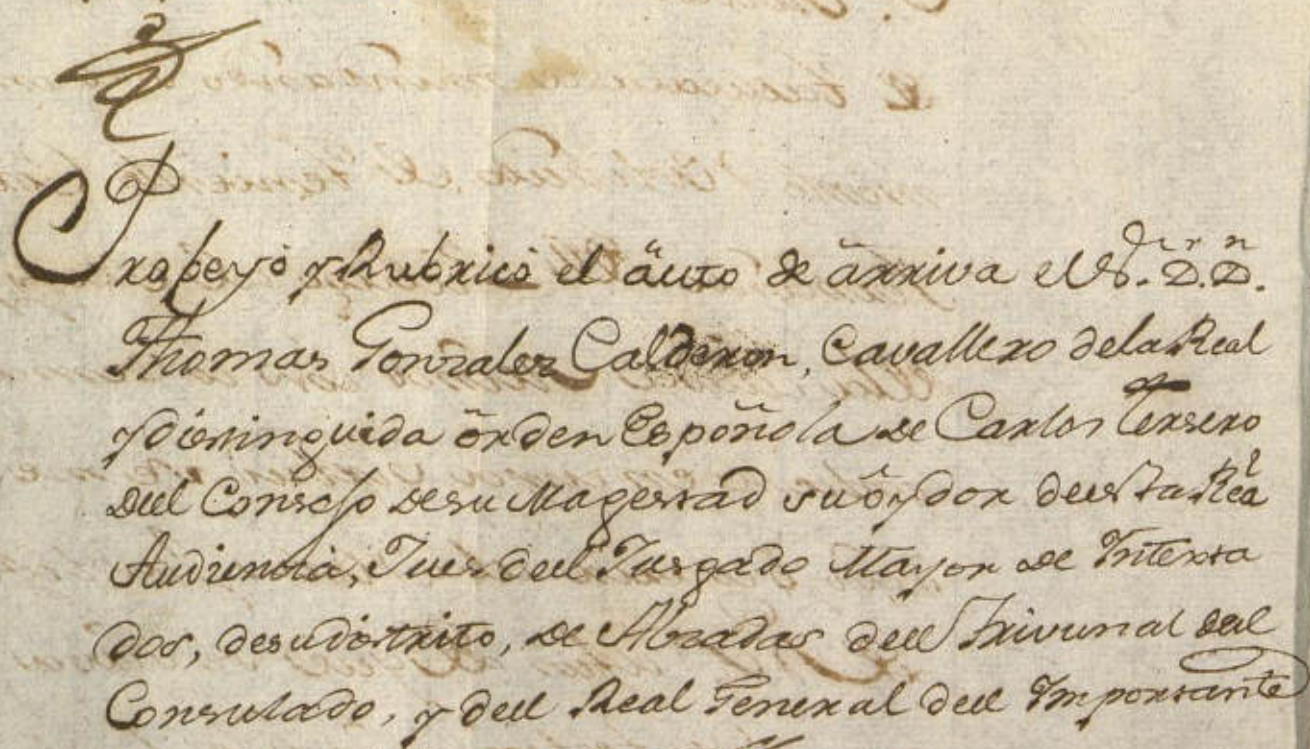 Probeyó y Rubricó el auto de arriva el S.or D.r D.n
Thomas Gonzalez Calderon, Cavallero dela Real
y distinguida órden Española de Carlos Tersero
del Consejo desu Magestad su óydor deesta Rea.l
Audiencia, Jues del Jusgado Mayor de Intesta
dos, desu distrito, de Alzadas del Trivunal del
Consulado, y del Real General del Importante